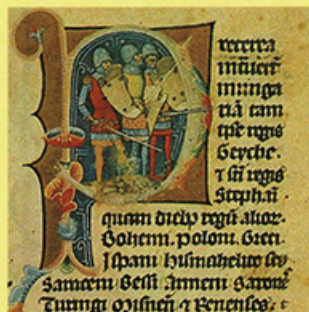 Preterea
intrauerūt
in unga
riā tam
tp̄e regis
Geyche.
⁊ sc̄i regis
Stephani
quam dieb₉ regū alior.
Bohemi. poloni. Greci.
Ispani hismahelite seu
Saraceni Bessi Armeni Saxones
Turingi Misnen̄ ⁊ Renenses.